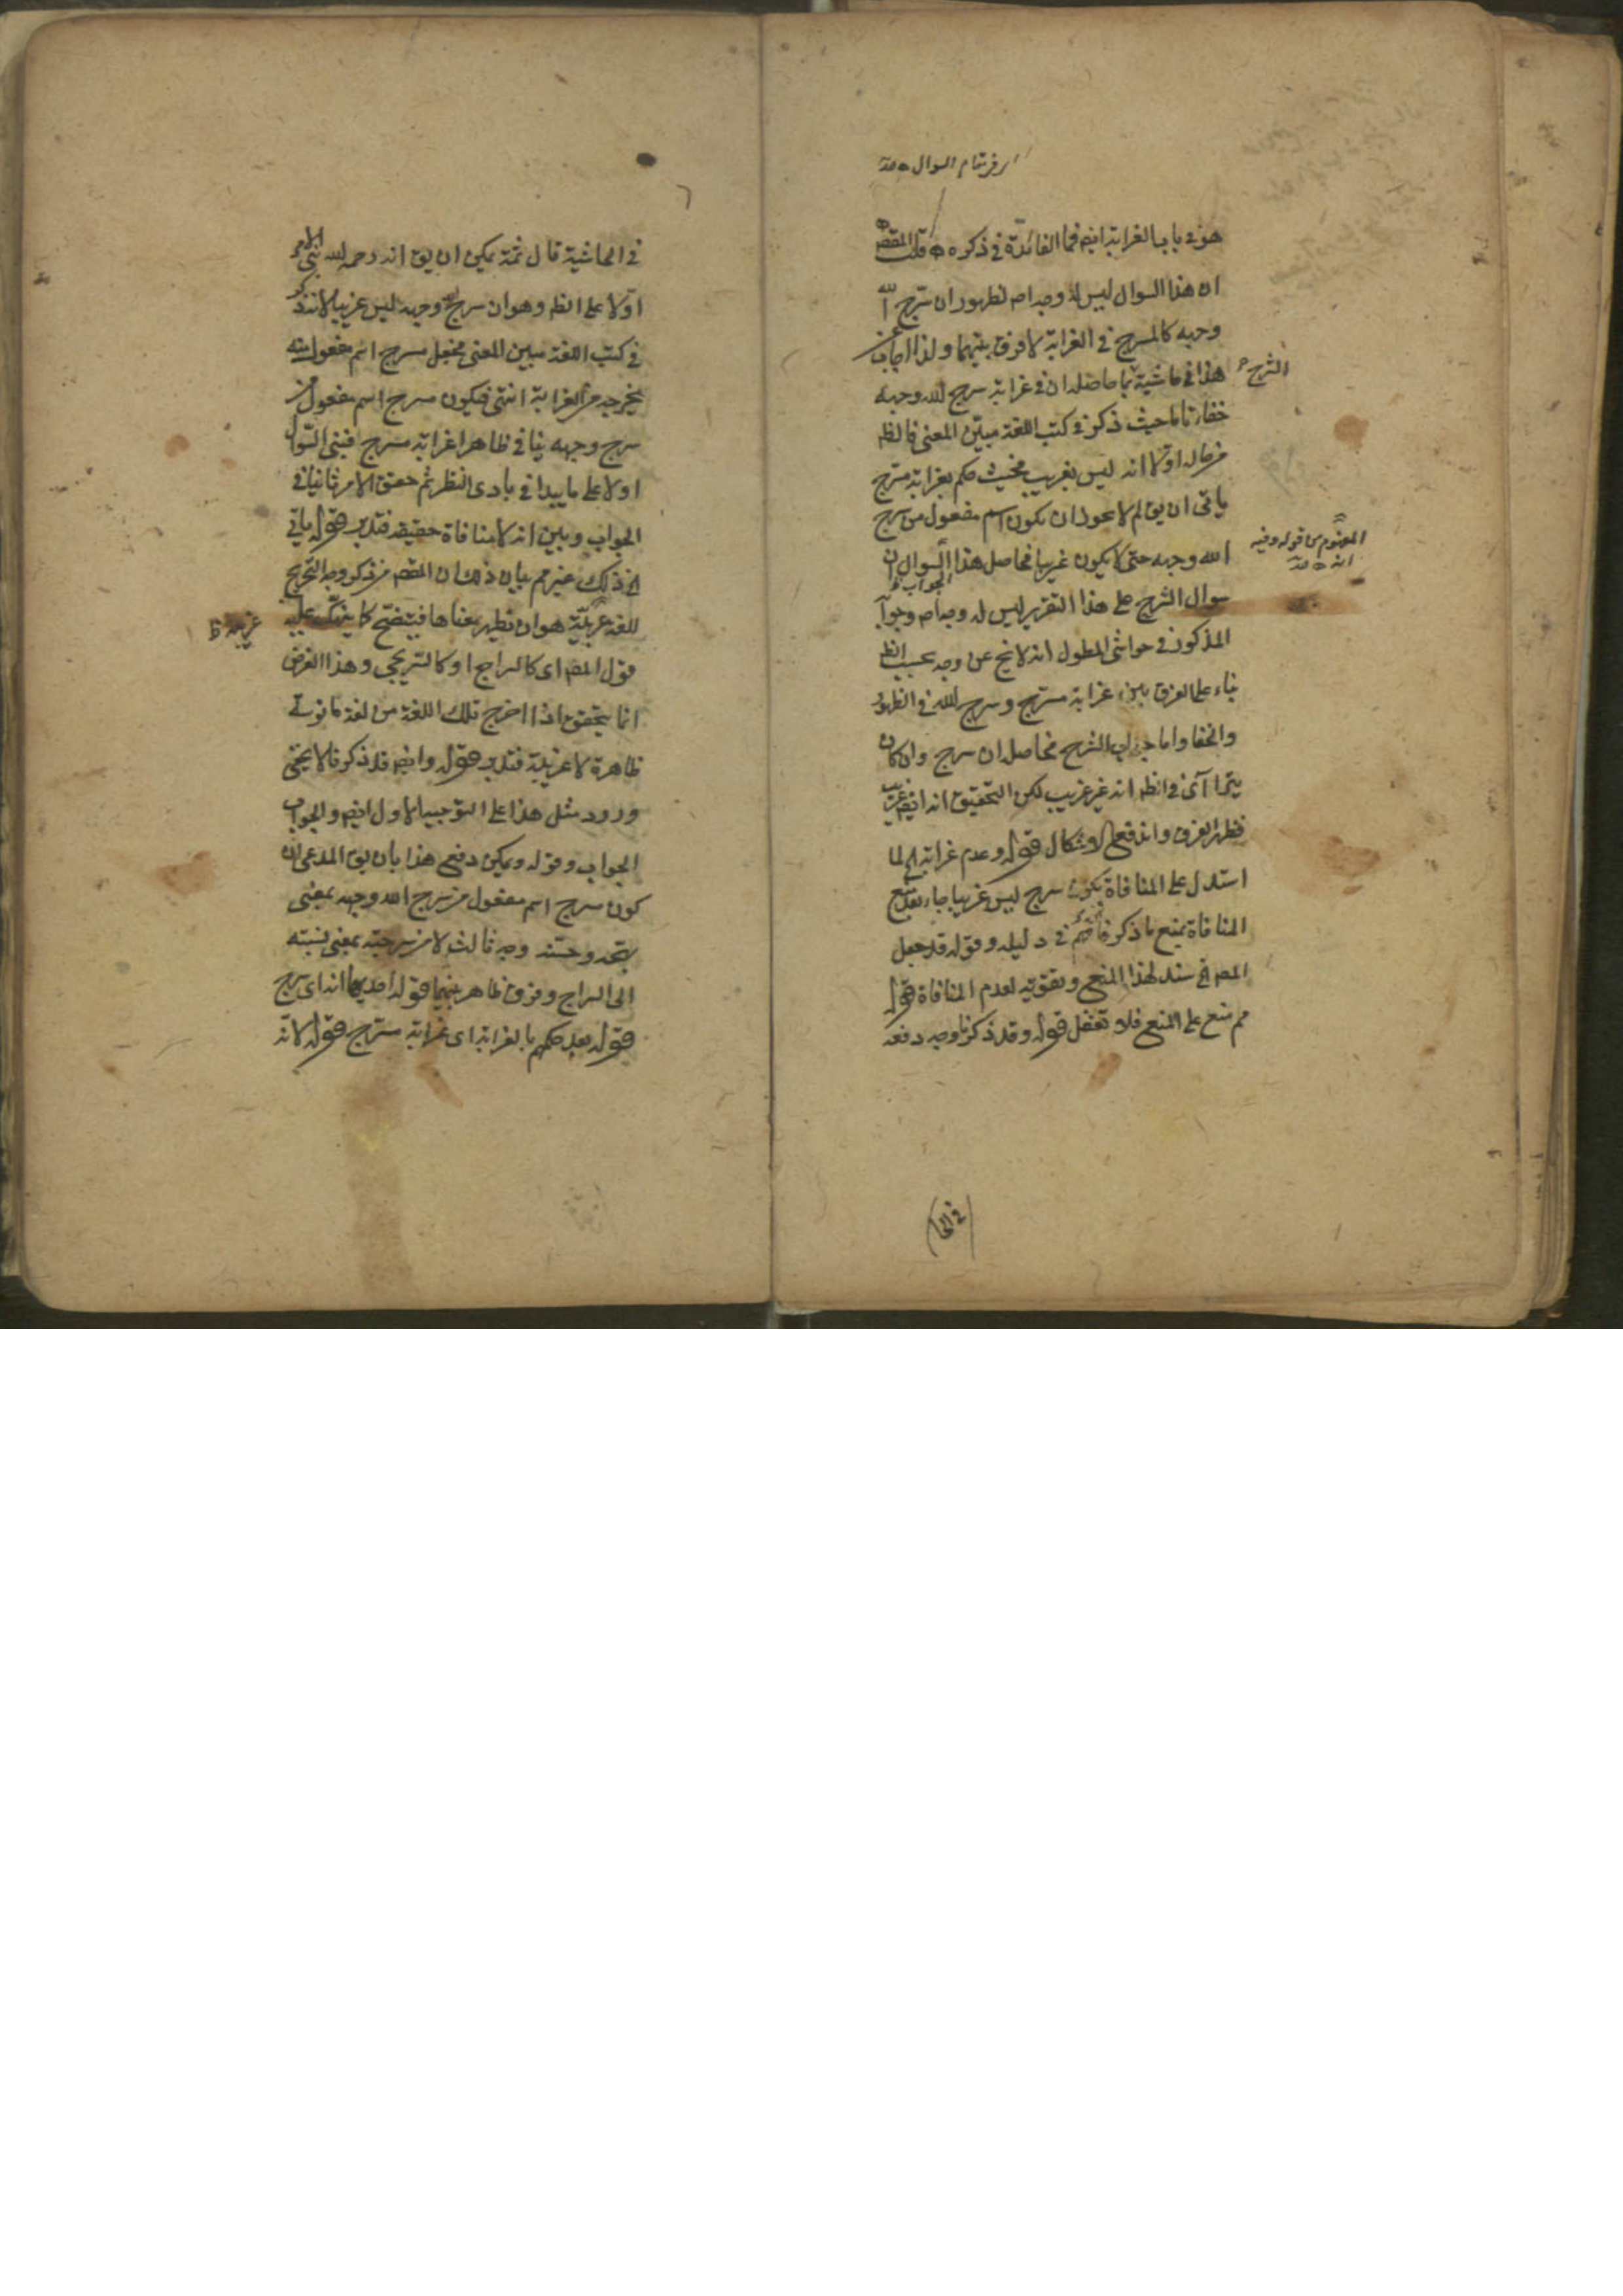 هو في باب الغرابة ايضا فما الفائدة في ذكره قلت المقصود
ان هذا السوال ليس له وجه اصلا لظهور ان سرج الله
وجهه كالمسرج في الغرابة لا فرق بينهما ولذا اجاب عن
هذا في حاشية بما حاصله ان في غرابة سرج الله وجهه
الشرح
خفاء تاما حيث ذكر في كتب اللغة مبين المعنى فالظ
من حاله اولا انه ليس بغريب فحيث حكم بغرابة مسرج
يأتي ان يق لم لا يجوز ان يكون اسم مفعول من سرج
الله وجهه حتى لا يكون غريبا فحاصل هذا السوال ان
الجواب
سوال الشرح على هذا التقرير ليس له وجه اصلا وجواب
المذكور في حواشي المطول انه لا يخ عن وجه بحسب الظ
بناء على الفرق بين غرابة مسرج وسرج الله في الظهور
والخفا واما جواب الشرح فحاصله ان سرج وان كان
يترا آى في الظ انه غير غريب لكن التحقيق انه ايضا غريب
فظهر الفرق واندفع الاشكال قوله وعدم غرابته الخ لما
استدل على المنافاة بكون سرج ليس غريبا جاء بعد منع
المنافاة بمنع ما ذكر في دليله وقوله قد جعل
المص الخ سند لهذا المنع وتقوية لعدم المنافاة قوله
مم منع على المنع فلا تغفل قوله وقد ذكرنا وجه دفعه
في الحا
في الحاشية قال ثمة يمكن ان يق انه رحمه الله بنى الامر
اولا على الظ وهو ان سرج وجهه ليس غريبا لانه ذكر
في كتب اللغة مبين المعنى فجعل مسرج اسم مفعول منه
يخرجه من الغرابة انتهى فيكون مسرج اسم مفعول من
سرج وجهه ينافي ظاهرا غرابة مسرج فبنى السوال
اولا على ما يبدا في بادى النظر ثم حقق الامر ثانيا في
الجواب وبين انه لا منافاة حقيقة فتدبر قوله يأتي
الخ ذلك غير مم بيان ذلك ان المقصود من ذكر وجه التخريج
للغة غريبة هو ان تظهر معناها فيتضح كما ينبئ عليه
قول المص اى كالسراج او كالسريجي وهذا الغرض
انما يتحقق اذا اخرج تلك اللغة من لغة مانوسة
ظاهرة لا غريبة فتدبر قوله وايضا قد ذكر فلا يخفى
ورود مثل هذا على التوجيه الاول ايضا والجواب
الجواب وقوله ويمكن دفع هذا بان يق المدعى ان
كون مسرج اسم مفعول من سرج الله وجهه بمعنى
بهجه وحسنه وجه ثالث لا من سرجته بمعنى نسبته
الى السراج وفرق ظاهر بينهما قوله احديهما انه اى سرج
قوله بعد حكمهم بالغرابة اى غرابة مسرج قوله لانه